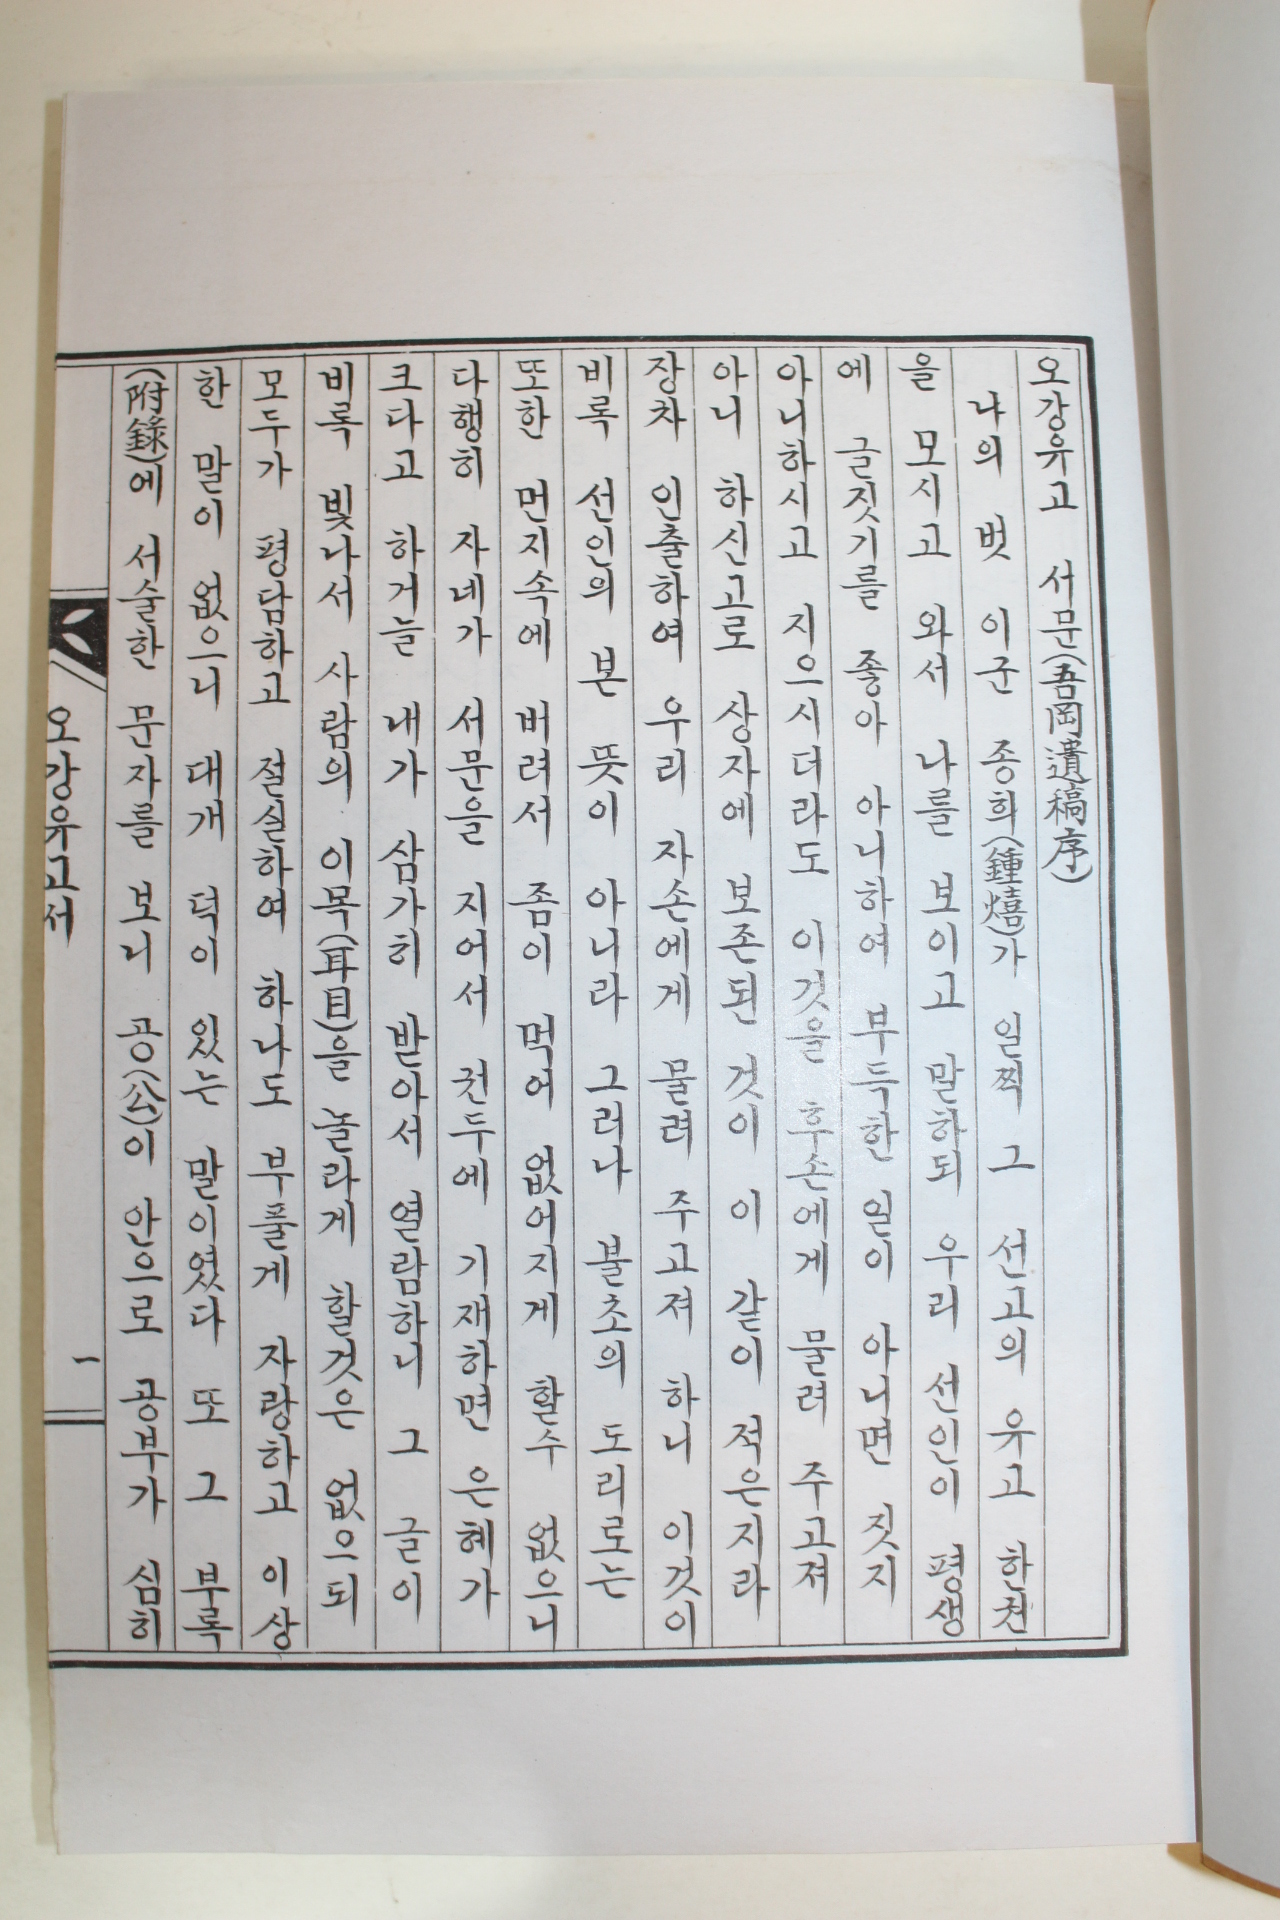 오강유고 서문(吾岡遺稿序)
나의 벗 이군 종희(鍾熺)가 일찍 그 선고의 유고 한천
을 모시고 와서 나를 보이고 말하되 우리 선인이 평생
에 글짓기를 좋아 아니하여 부득한 일이 아니면 짓지
아니하시고 지으시더라도 이것을 후손에게 물려 주고져
아니 하신고로 상자에 보존된 것이 이 같이 적은지라
장차 인출하여 우리 자손에게 물려 주고져 하니 이것이
비록 선인의 본 뜻이 아니라 그러나 불초의 도리로는
또한 먼지속에 버려서 좀이 먹어 없어지게 할수 없으니
다행히 자네가 서문을 지어서 권두에 기재하면 은혜가
크다고 하거늘 내가 삼가히 받아서 열람하니 그 글이
비록 빛나서 사람의 이목(耳目)을 놀라게 할것은 없으되
모두가 평담하고 절실하여 하나도 부풀게 자랑하고 이상
한 말이 없으니 대개 덕이 있는 말이였다 또 그 부록
(附錄)에 서술한 문자를 보니 공(公)이 안으로 공부가 심히
오강유고서
一